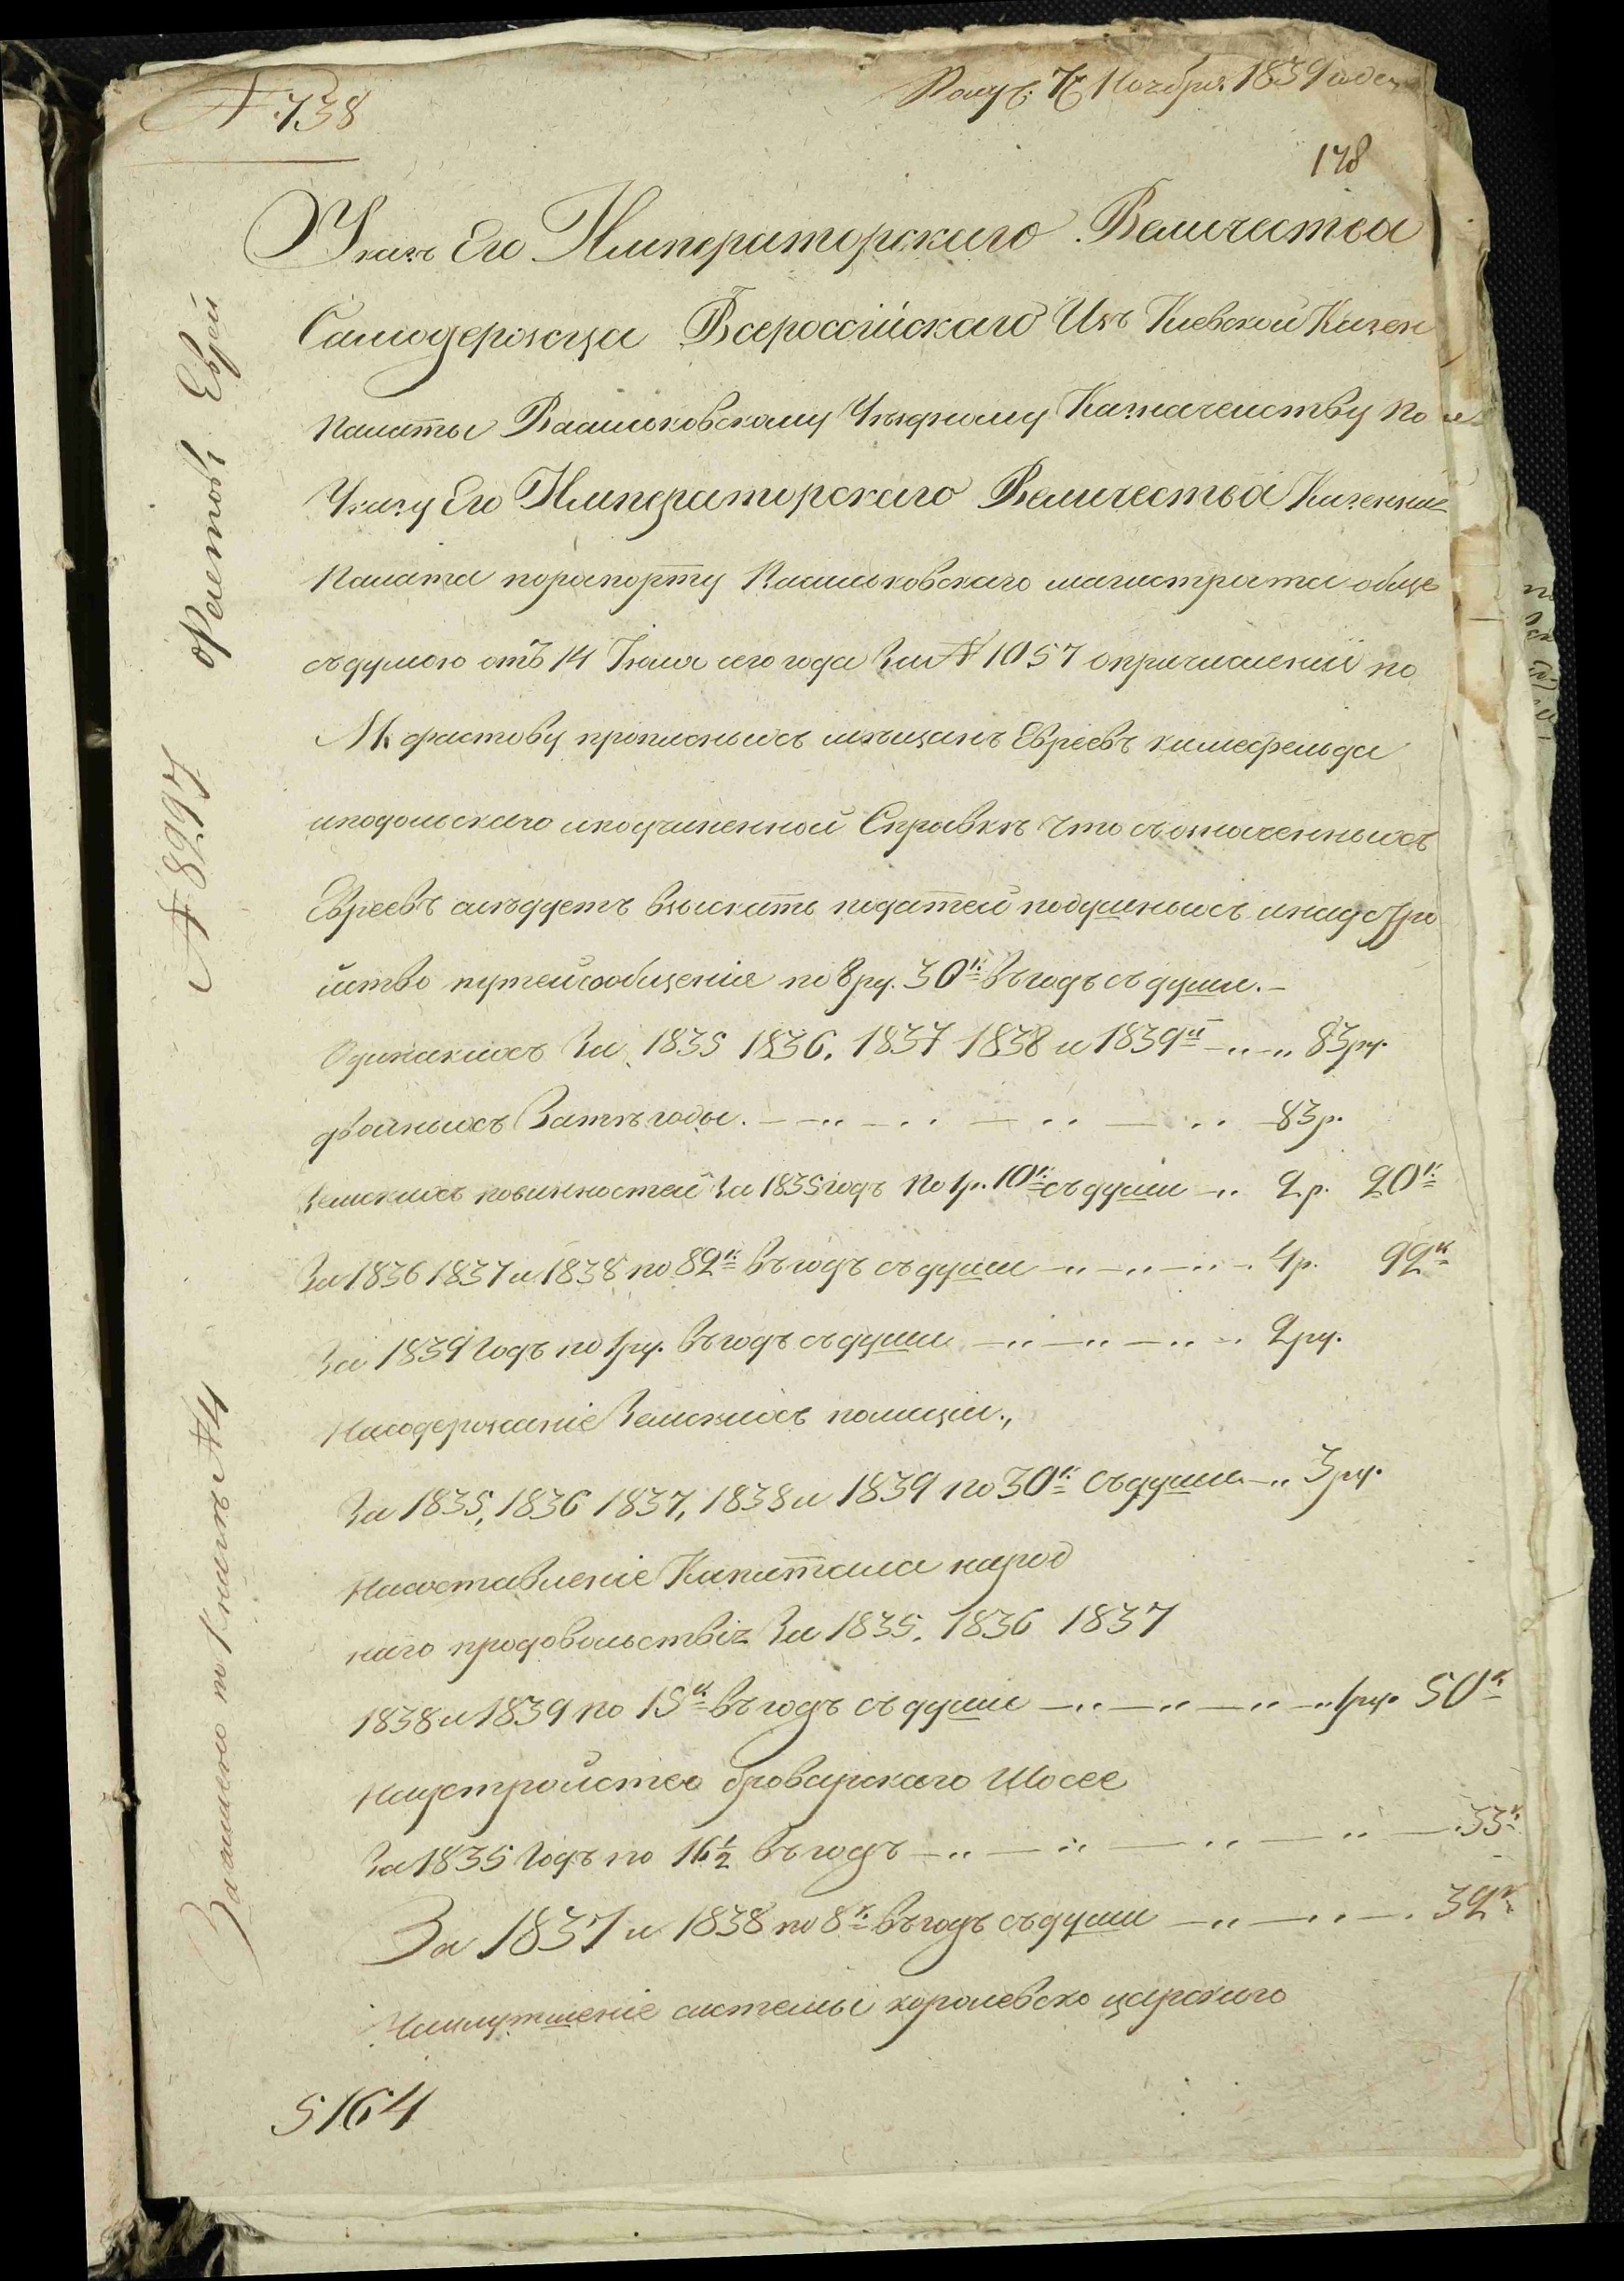 № 738
Получ: 7 Ноября 1839 года
178
Указъ Его Императорскаго Величества
Самодержца Всероссійскаго Изъ Кіевской Казен
Палаты Васильковскому Уѣздному Казначейству По
Указу Его Императорскаго Величества Казенная
Палата порапорту Васильковскаго магистрата обще
съдумою отъ 14 Іюля сего года За № 1057 опричисленіи по
М. фастову прописныхъ мѣщанъ Евреевъ
иподольскаго иподчиненной Справкѣ Что съозначенныхъ
Евреевъ слѣдуетъ взыскать податей подушныхъ инаустро
йство путейсообщенія по 8 ру. 30 к. въгодъ съ души. —
Одинакихъ За 1835 1836. 1837 1838 и 1839 й — 83 ру.
двойныхъ Затѣ годы. — 83 р.
Земскихъ повинностей За 1835 годъ По 1 р. 10 к. съ души — 2 р. 20 к.
За 1836 1837 и 1838 по 82 к. въгодъ съ души — 4 р. 92 к.
За 1839 Годъ по 1 ру. въгодъ съ души — 2 ру.
Насодержаніе Земскихъ полиціи.,
За 1835, 1836 1837, 1838 и 1839 по 30 к. съдуши — 3 ру.
Насоставленіе Капитала народ
наго продовольствія За 1835. 1836 1837
1838 и 1839 по 15 к. въгодъ съ души — 1 ру. 50 к.
Наустройство броварскаго Шосее
За 1835 Годъ по 16½ въгодъ — 33 к.
За 1837 и 1838 по 8 к. въгодъ съдуши — 32 к.
Наулутшеніе системы королевско царскаго
5164
фастовъ Евреи
№ 8997
Записано по Книгѣ № 4